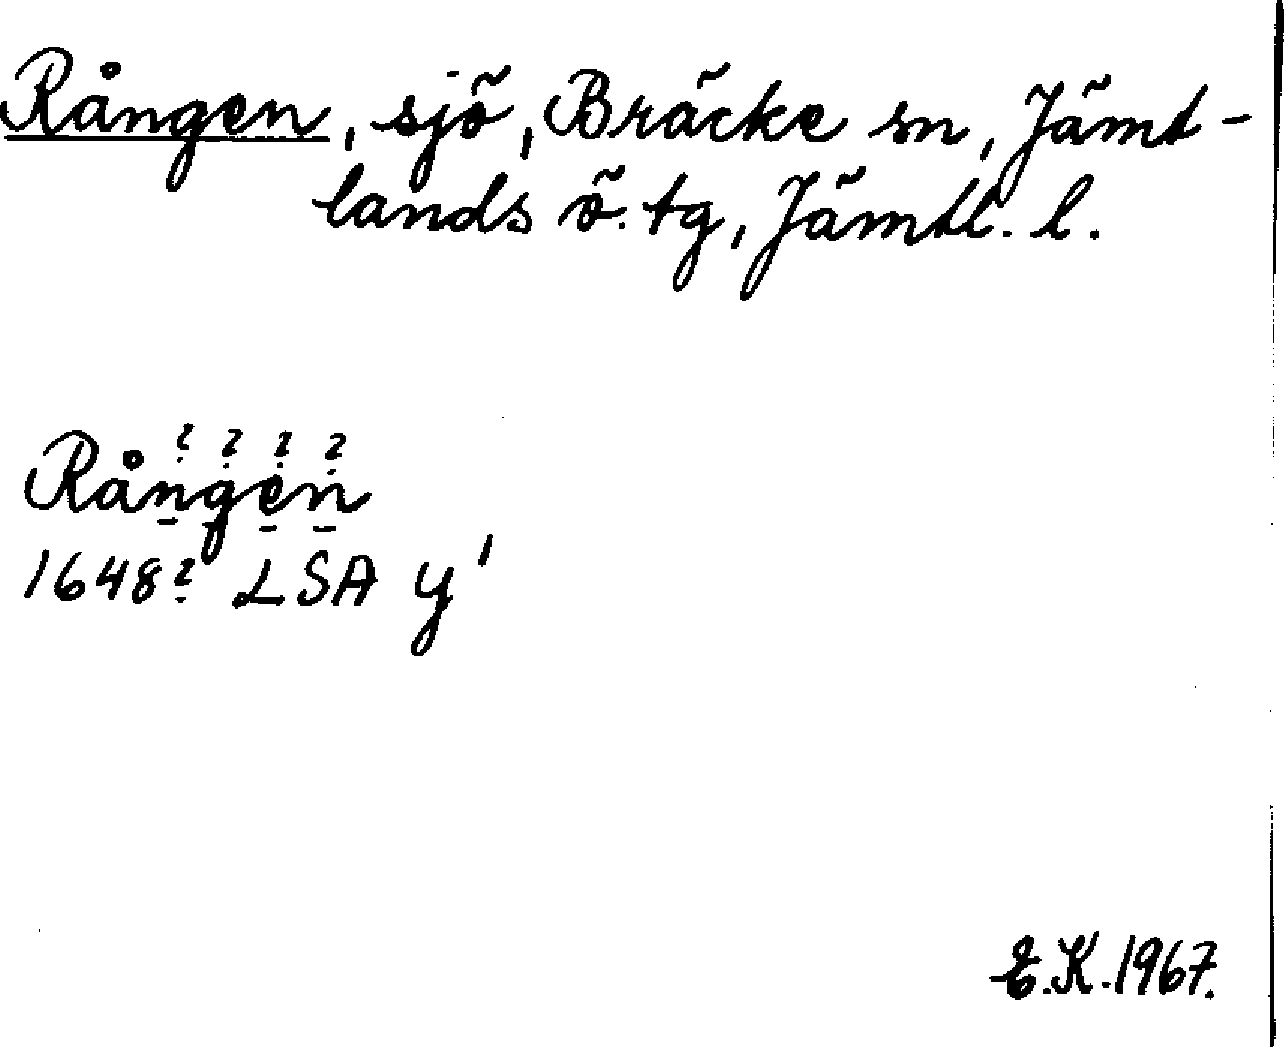 Rången, sjö, Bräcke sn, Jämt-
lands ö. tg, Jämtl. l.
? ? ? ?
Rången
1648? LSA Y'
E.K. 1967.